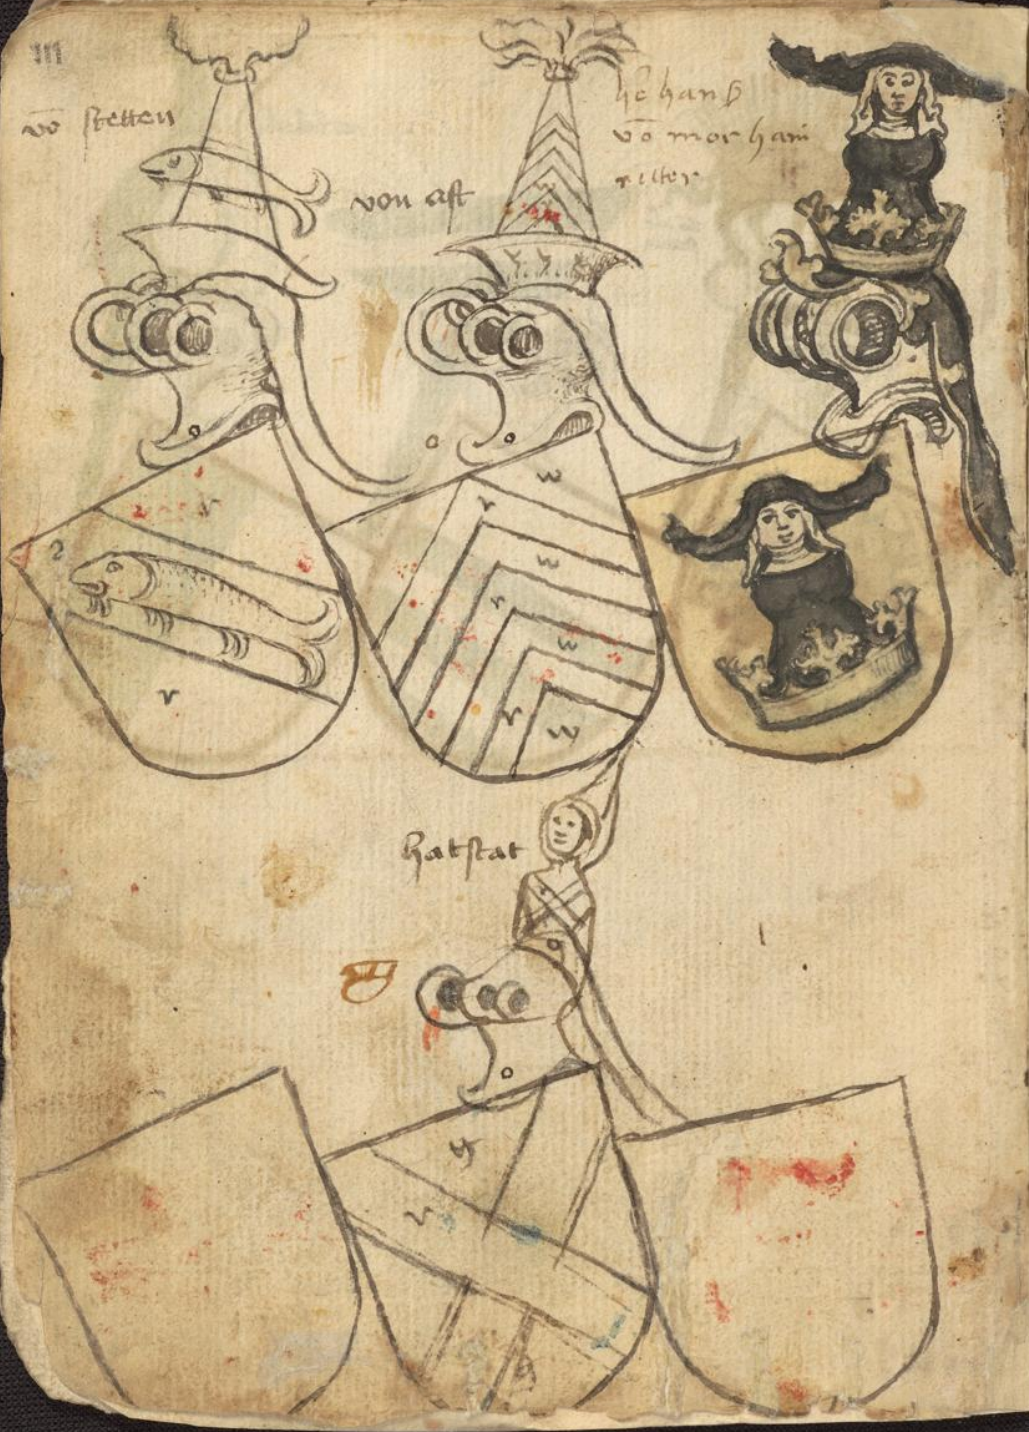 111
vō stetten
von ast
he hanß
vō morhaīn
ritter
r
2
r
w
r
w
r
w
r
w
hatstat
g
r
g